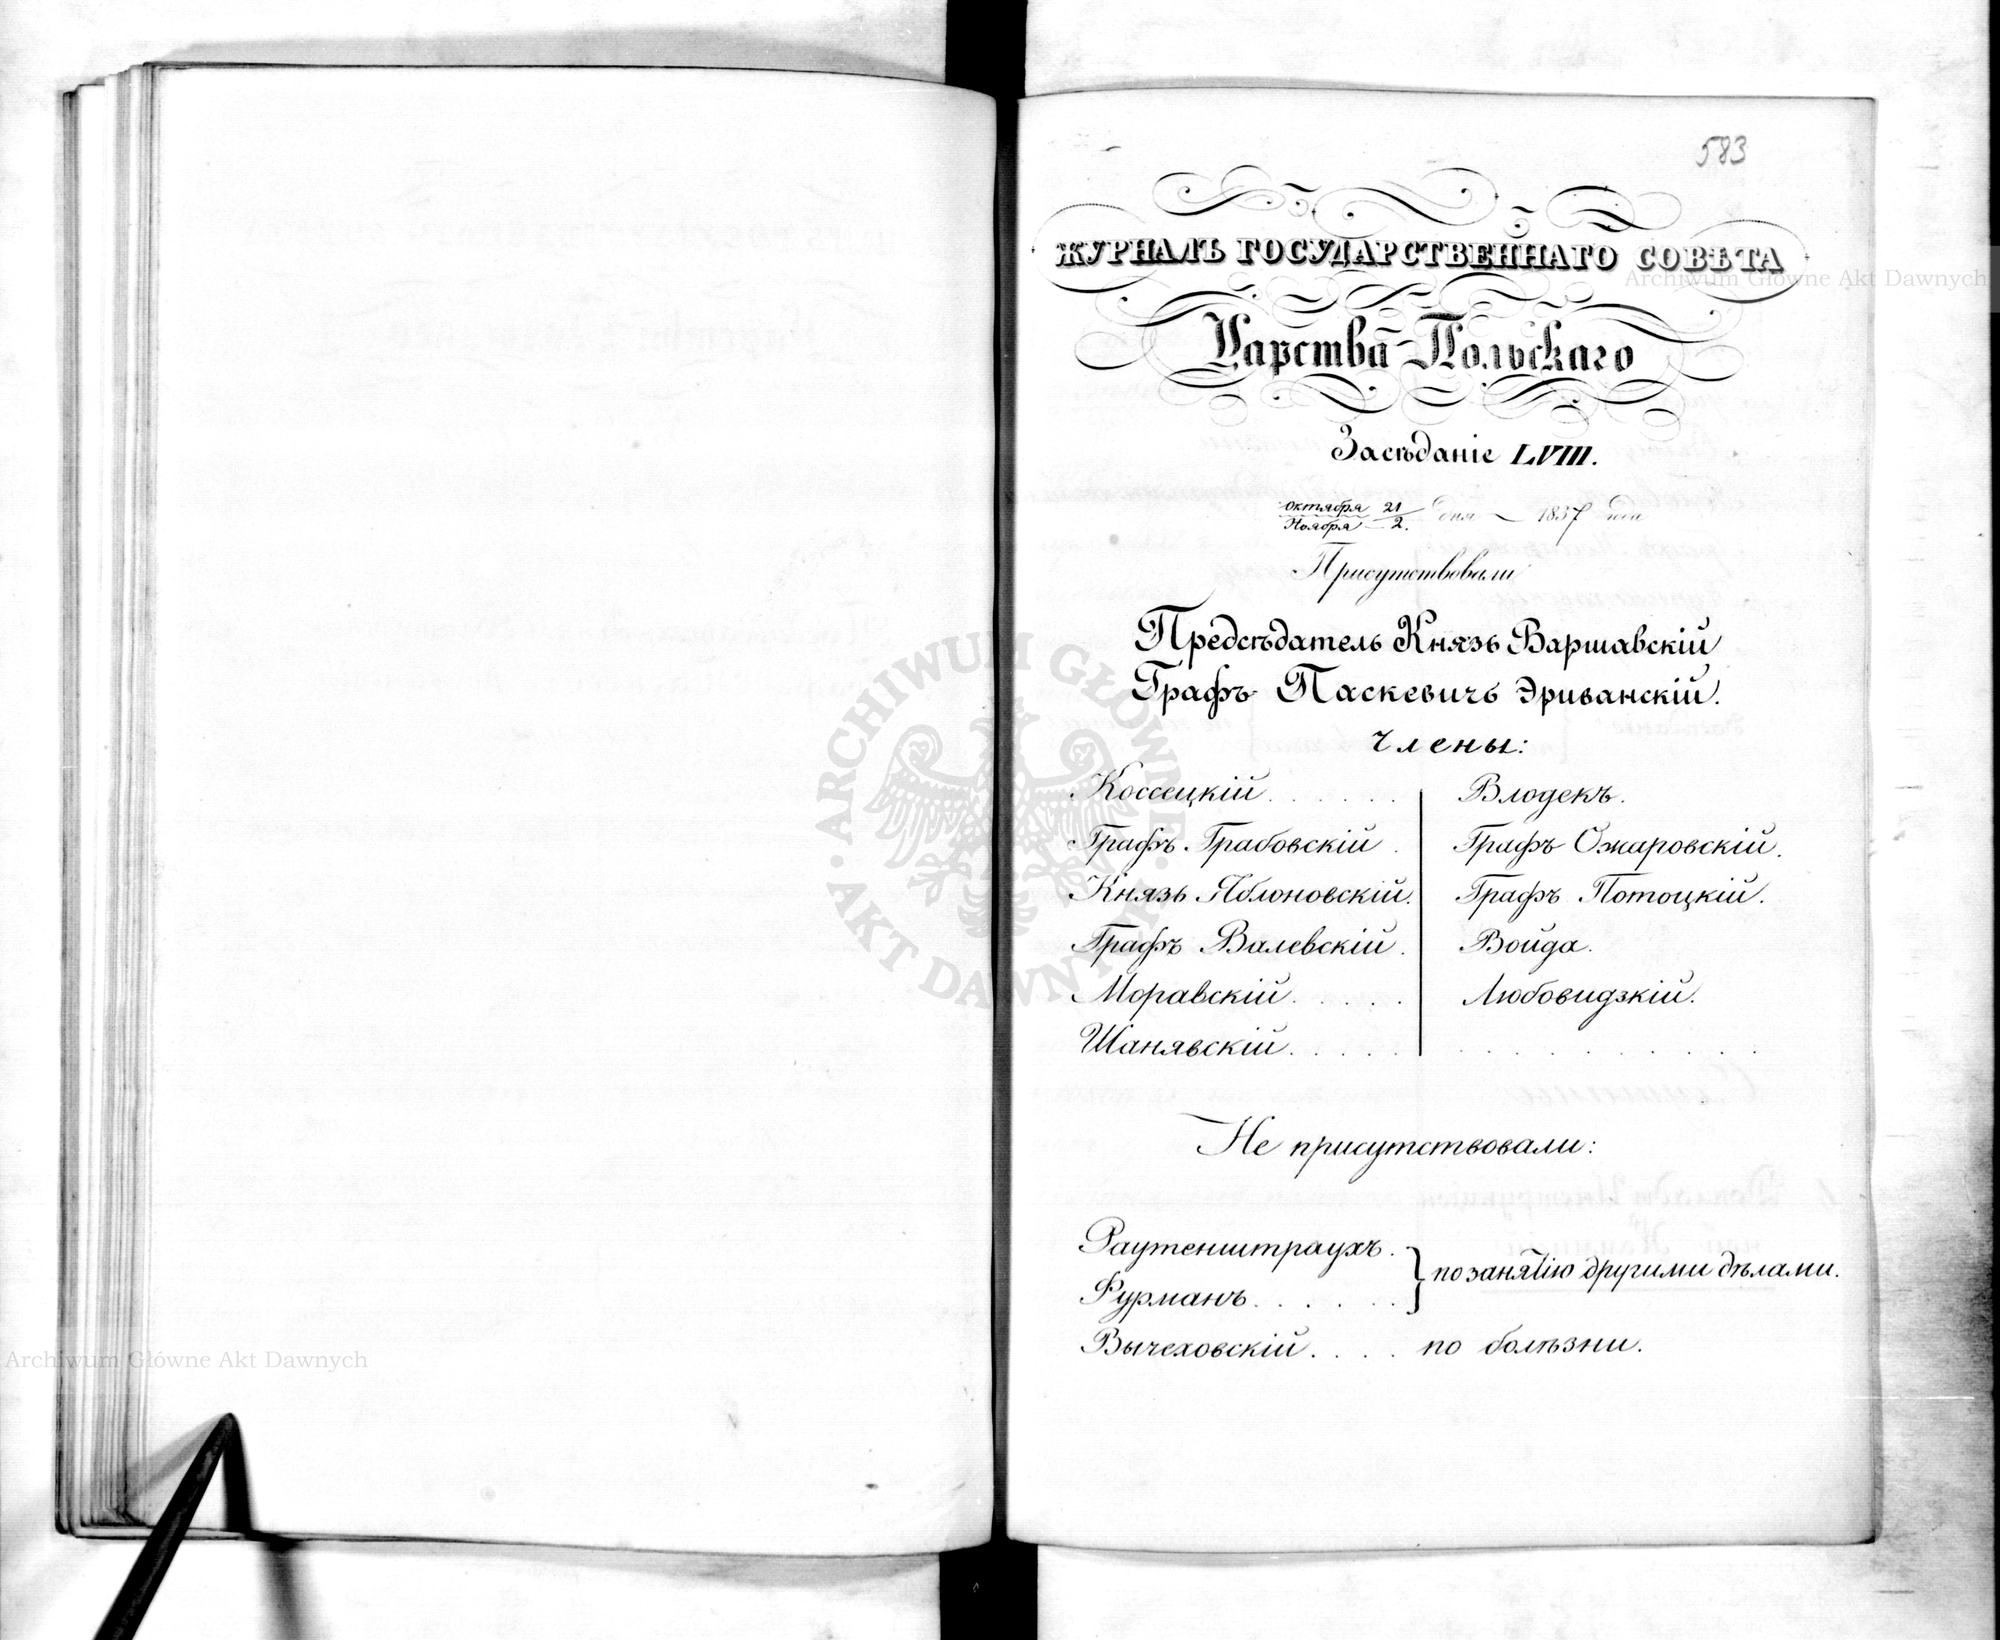 583
ЖУРНАЛЪ ГОСУДАРСТВЕННАГО СОВѢТА
Царства Польскаго
Засѣданіе LVIII.
Октября 21 / Ноября 2. дня 1837 года
Присутствовали
Предсѣдатель Князь Варшавскій
Графъ Паскевичъ Эриванскій.
Члены:
Коссецкій . . . . . . Влодекъ.
Графъ Грабовскій . Графъ Ожаровскій.
Князь Яблоновскій. Графъ Потоцкій.
Графъ Валевскій . Войда.
Моравскій . . . . . Любовидзкій.
Шанявскій . . . . .
Не присутствовали:
Раутенштраухъ.
по занятію другими дѣлами.
Фурманъ . . . . . .
Вычеховскій . . . . по болѣзни.
Archiwum Główne Akt Dawnych
ARCHIWUM GŁÓWNE · AKT DAWNYCH ·
Archiwum Główne Akt Dawnych